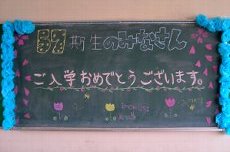 期生のみなさん
ご入学おめでとうございます。